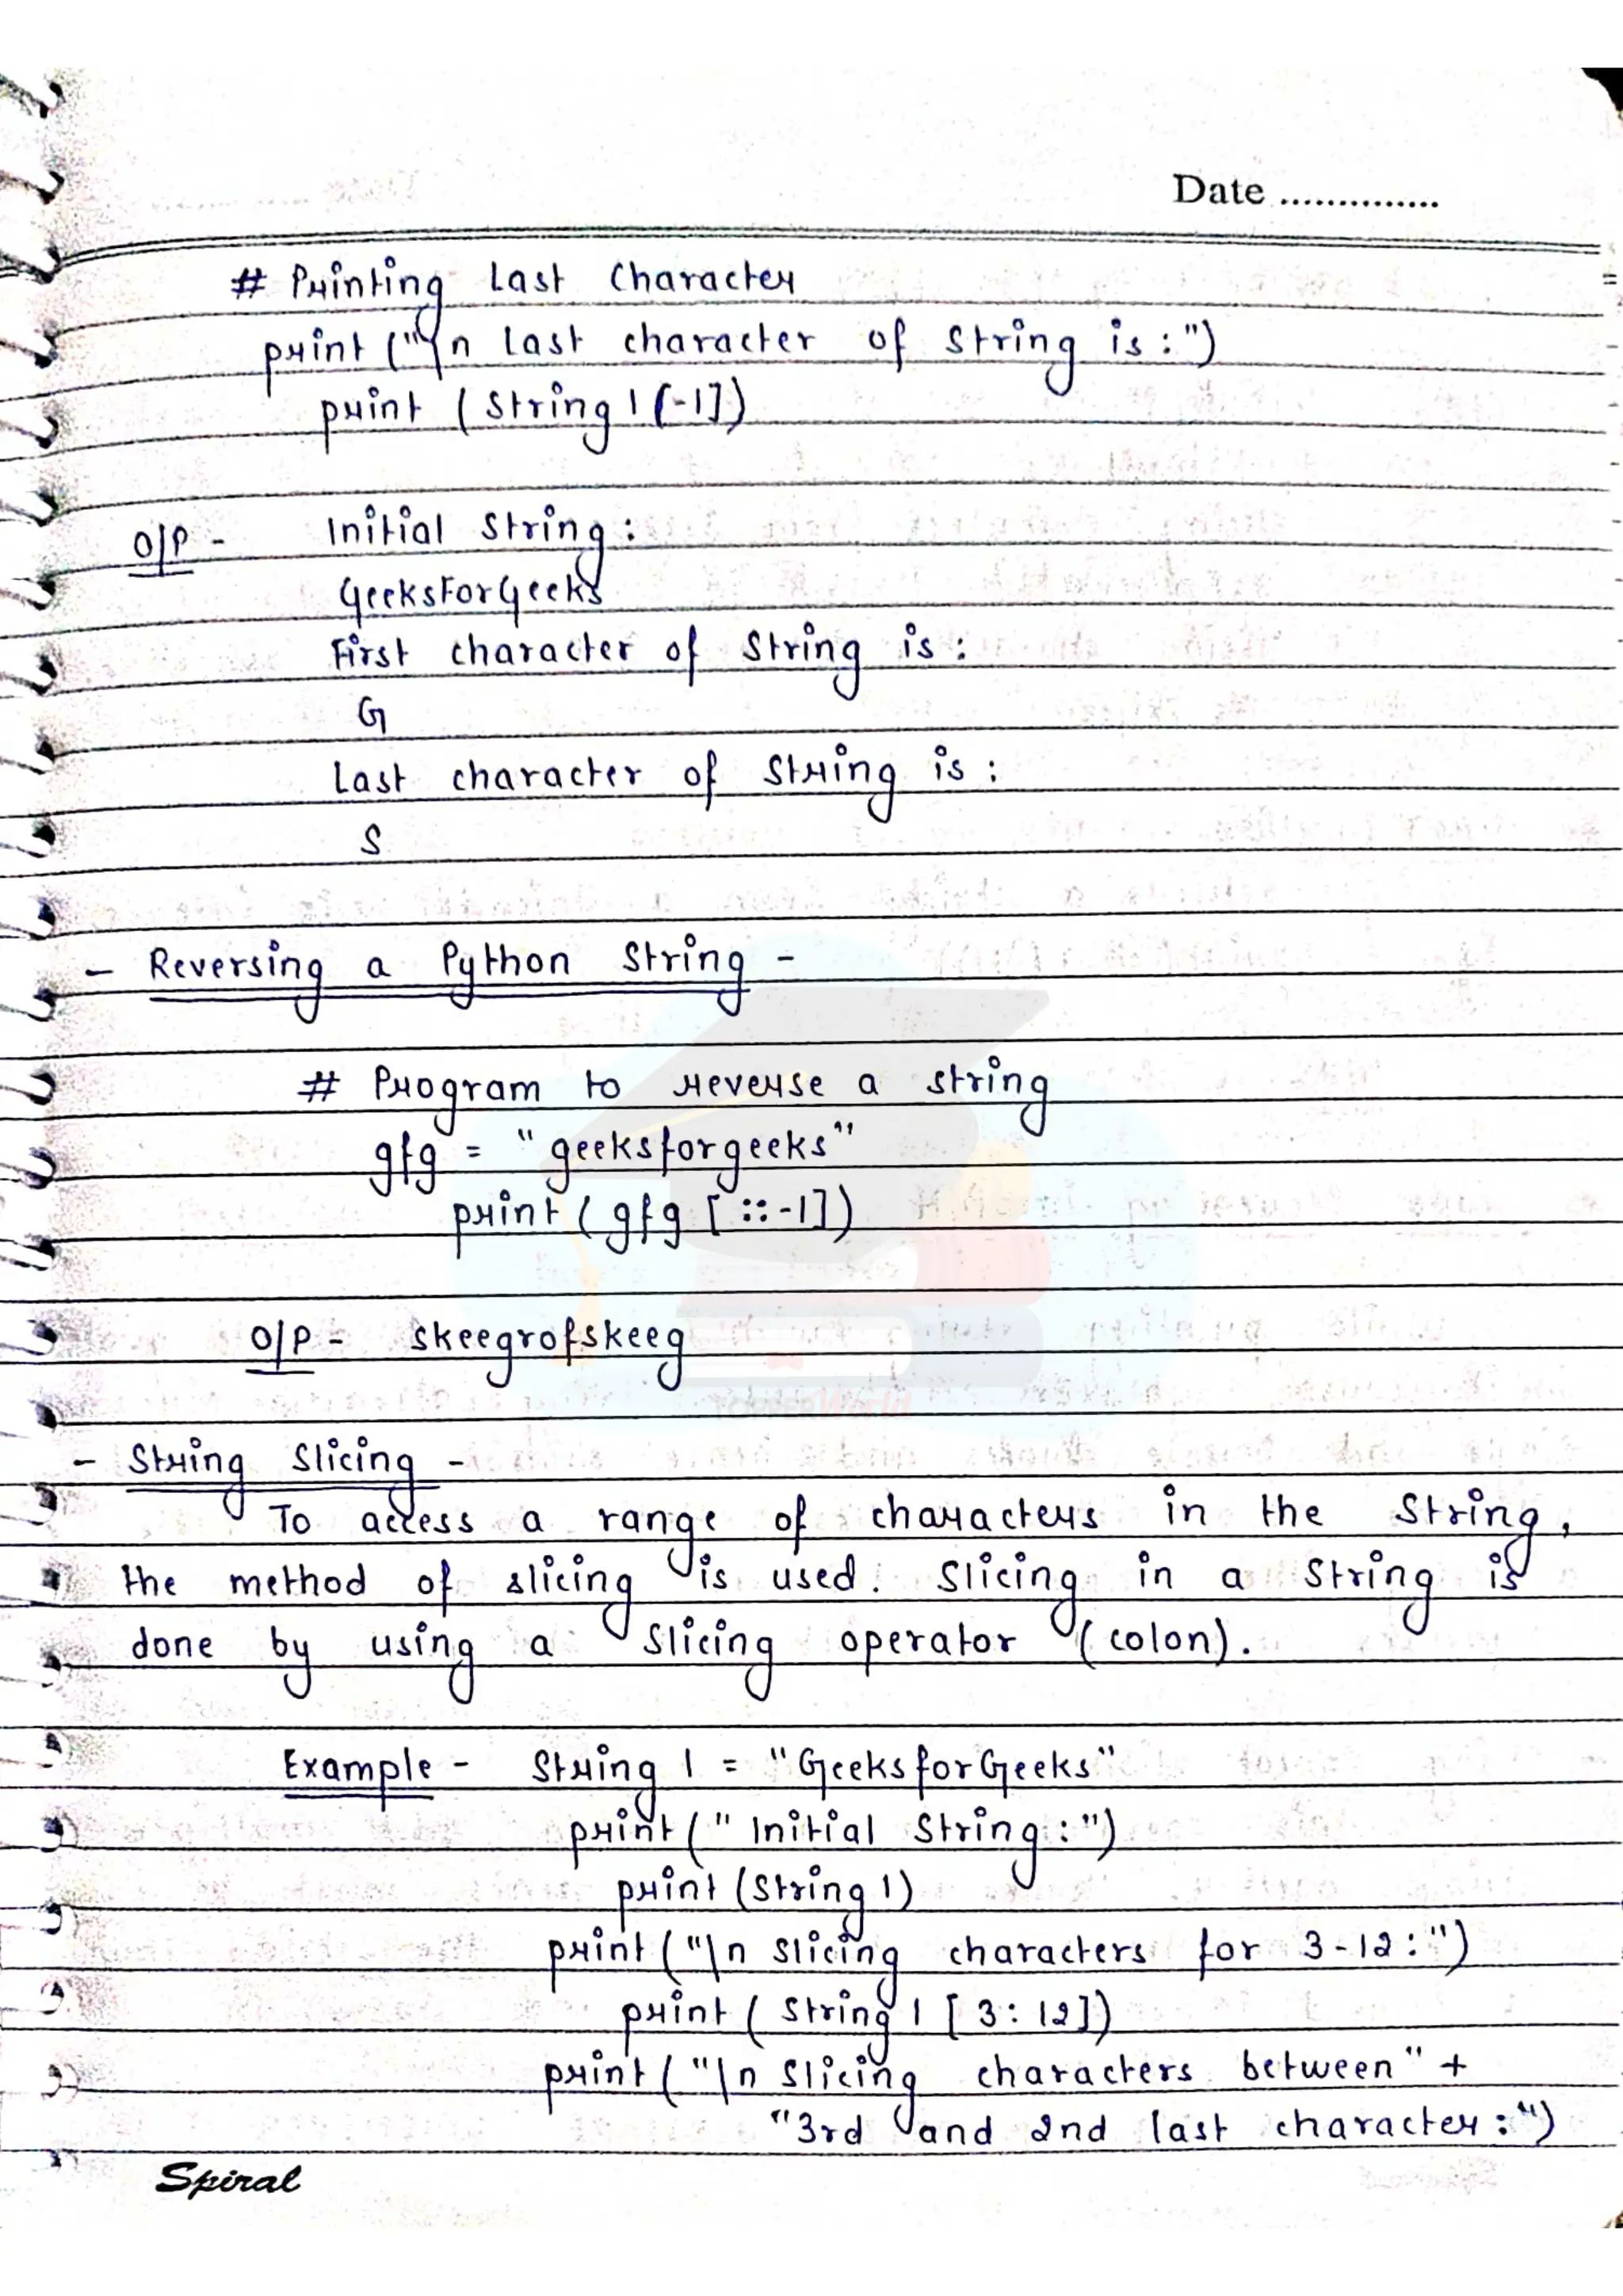 Date ..............
# Printing Last Character
print ("\n Last character of String is:")
print (String 1 [-1])
O/P - Initial String:
GeeksForGeeks
First character of String is:
G
Last character of String is:
S
- Reversing a Python String -
# Program to reverse a string
gfg = "geeksforgeeks"
print (gfg [::-1])
O/P - skeegrofskeeg
TOPPERWorld
- String Slicing -
To access a range of characters in the String,
the method of slicing is used. Slicing in a String is
done by using a Slicing operator (colon).
Example - String 1 = "GeeksforGeeks"
print (" Initial String:")
print (String 1)
print ("\n Slicing characters for 3-12:")
print (String 1 [3:12])
print ("\n Slicing characters between" +
"3rd and 2nd last character:")
Spiral